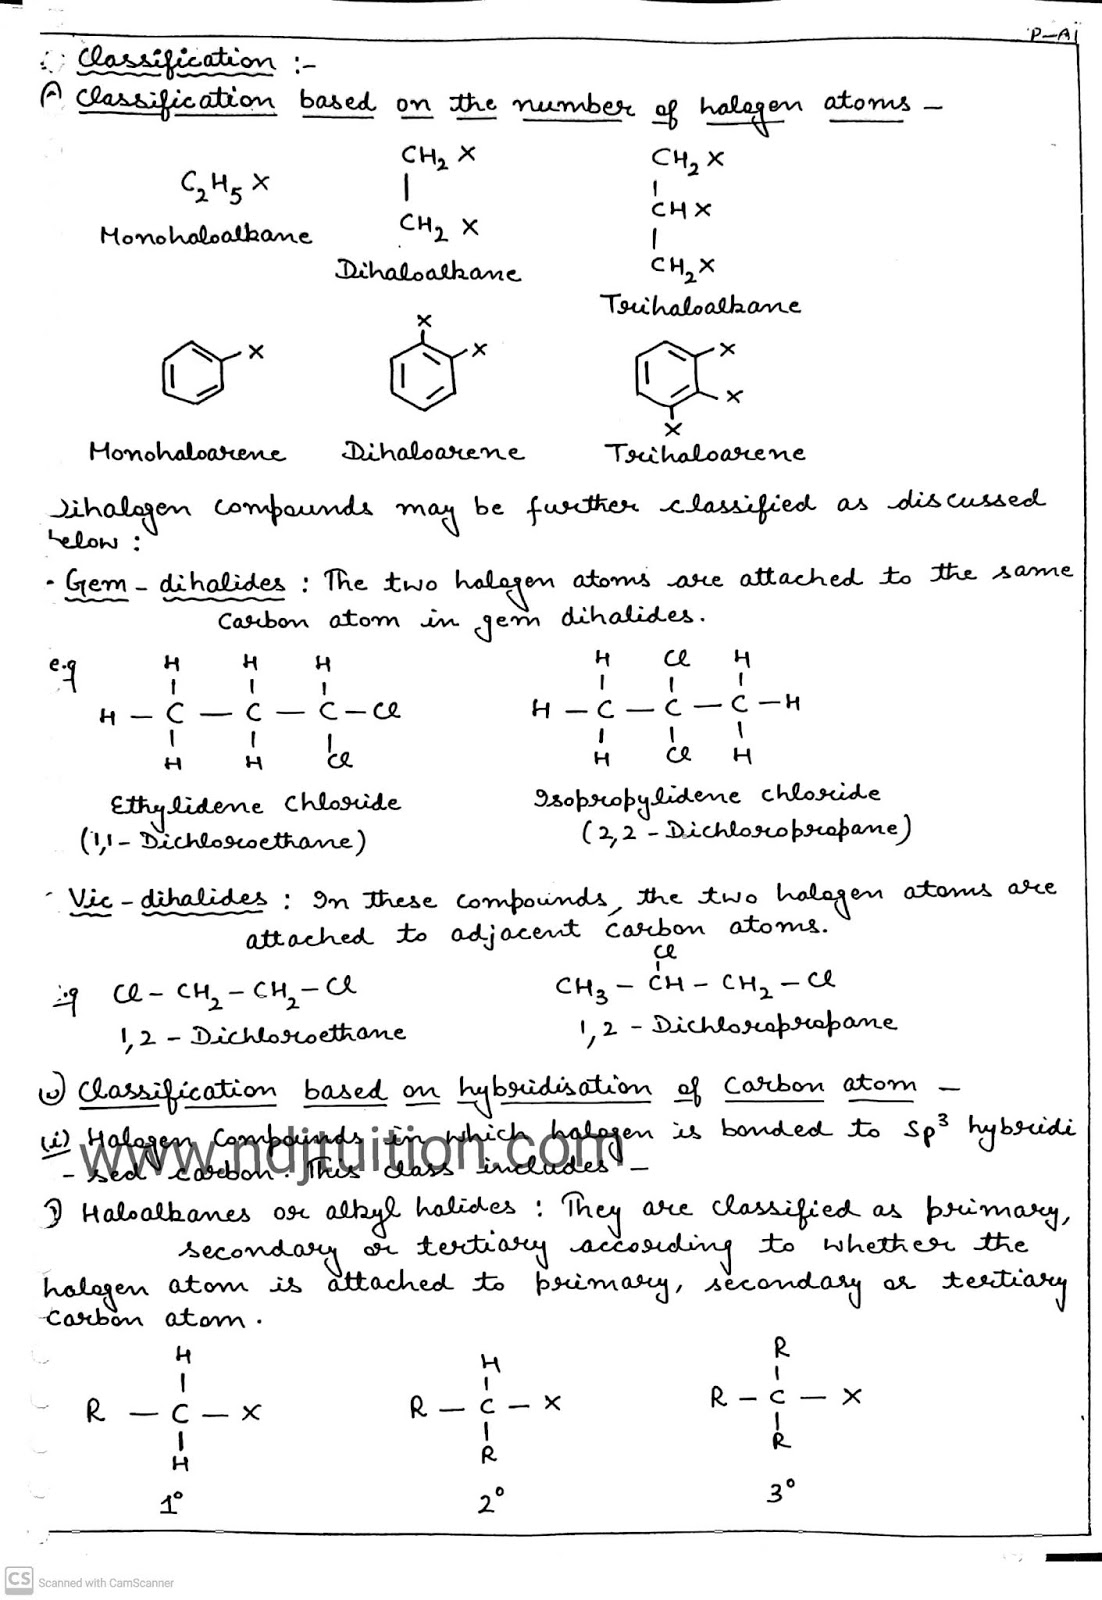 P-A1
Classification :-
A Classification based on the number of halogen atoms –
C₂H₅X
CH₂X
CH₂X
CH₂X
CHX
CH₂X
Monohaloalkane
Dihaloalkane
Trihaloalkane
X
X
X
X
X
X
Monohaloarene
Dihaloarene
Trihaloarene
Dihalogen compounds may be further classified as discussed
below :
· Gem – dihalides : The two halogen atoms are attached to the same
Carbon atom in gem dihalides.
e.g
H H H
H – C – C – C – Cl
H H Cl
H Cl H
H – C – C – C – H
H Cl H
Ethylidene Chloride
(1,1 – Dichloroethane)
Isopropylidene chloride
(2,2 – Dichloropropane)
· Vic – dihalides : In these compounds, the two halogen atoms are
attached to adjacent carbon atoms.
Cl – CH₂ – CH₂ – Cl
1,2 – Dichloroethane
Cl
CH₃ – CH – CH₂ – Cl
1,2 – Dichloropropane
Classification based on hybridisation of carbon atom –
(i) Halogen Compounds in which halogen is bonded to Sp³ hybridi
– sed carbon. This class includes –
www.ndjtuition.com
Haloalkanes or alkyl halides : They are classified as primary,
secondary or tertiary according to whether the
halogen atom is attached to primary, secondary or tertiary
carbon atom.
H
R – C – X
H
1°
H
R – C – X
R
2°
R
R – C – X
R
3°
CS Scanned with CamScanner